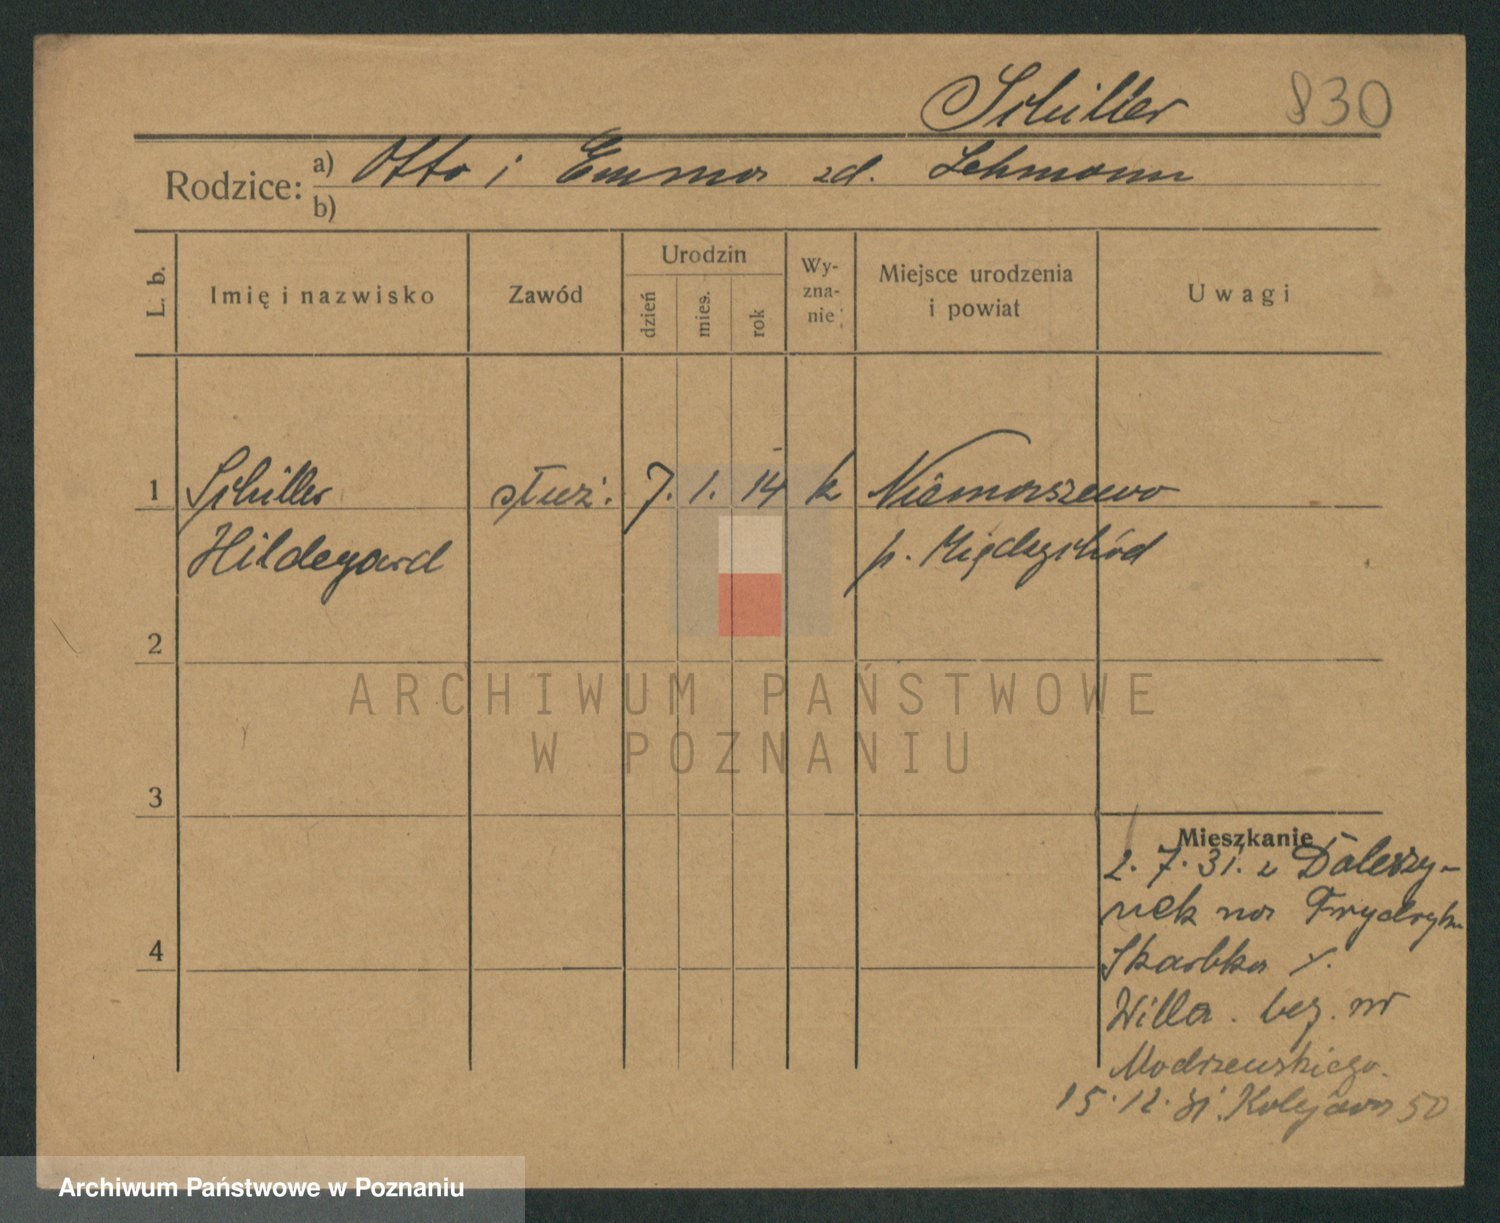 Schiller 830
Rodzice: a) Otto i Emma zd. Lehmann
b)
L. b. Imię i nazwisko Zawód Urodzin dzień mies. rok Wy-zna-nie Miejsce urodzenia i powiat Uwagi
1 Schiller służ. 7. 1. 14 k Niemorszewo
Hildegard p. Międzychód
2
ARCHIWUM PAŃSTWOWE
W POZNANIU
3
Mieszkanie
2. 7. 31. z Daleszy-
nek na Frydryka
Skarbka
Willa. bez. nr
Modrzewskiego.
15. 12. 31. Kolejowa 50
4
Archiwum Państwowe w Poznaniu